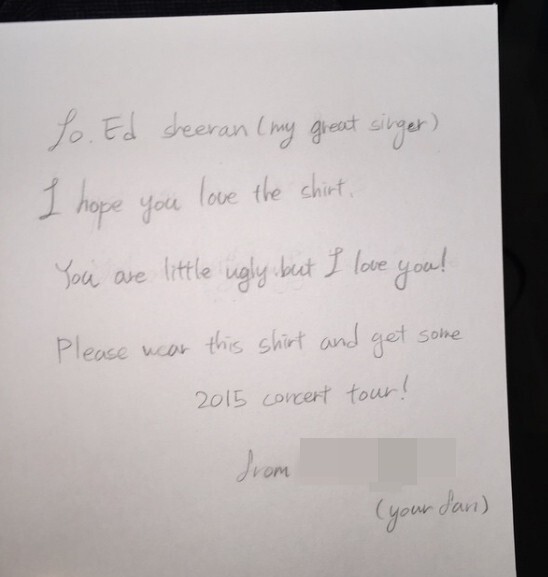 To. Ed sheeran (my great singer)
I hope you love the shirt.
You are little ugly but I love you!
Please wear this shirt and get some
2015 concert tour!
from
(your fan)